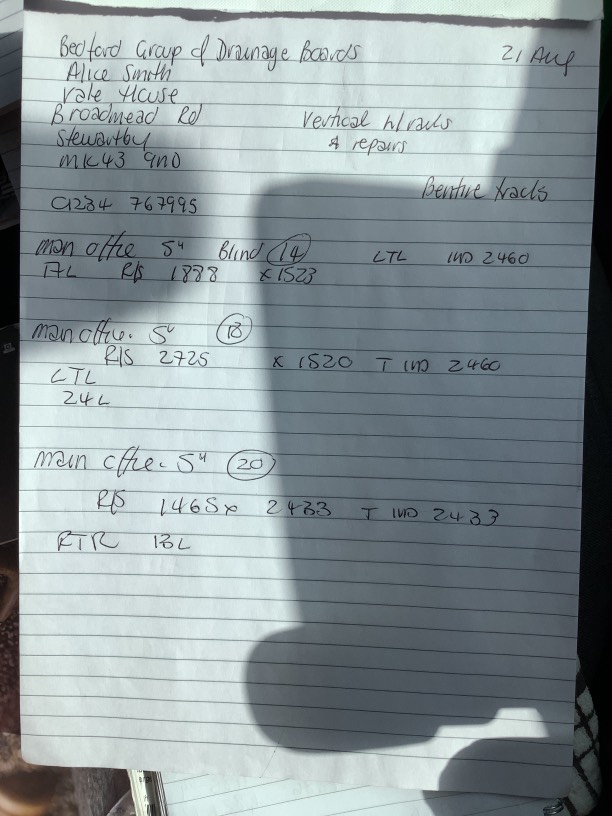 Bedford Group of Drainage Boards 21 Aug
Alice Smith
Vale House
Broadmead Rd
Stewartby
MK43 9ND
Vertical h/rails
& repairs
Benthe tracks
01234 767995
main office 5" Blind 14 LTL IND 2460
17L R/S 1888 x 1523
main office. 5" 18
R/S 2725 x 1520 T IND 2460
LTL
24L
main office. 5" 20
R/S 1465 x 2433 T IND 2433
RTR 13L